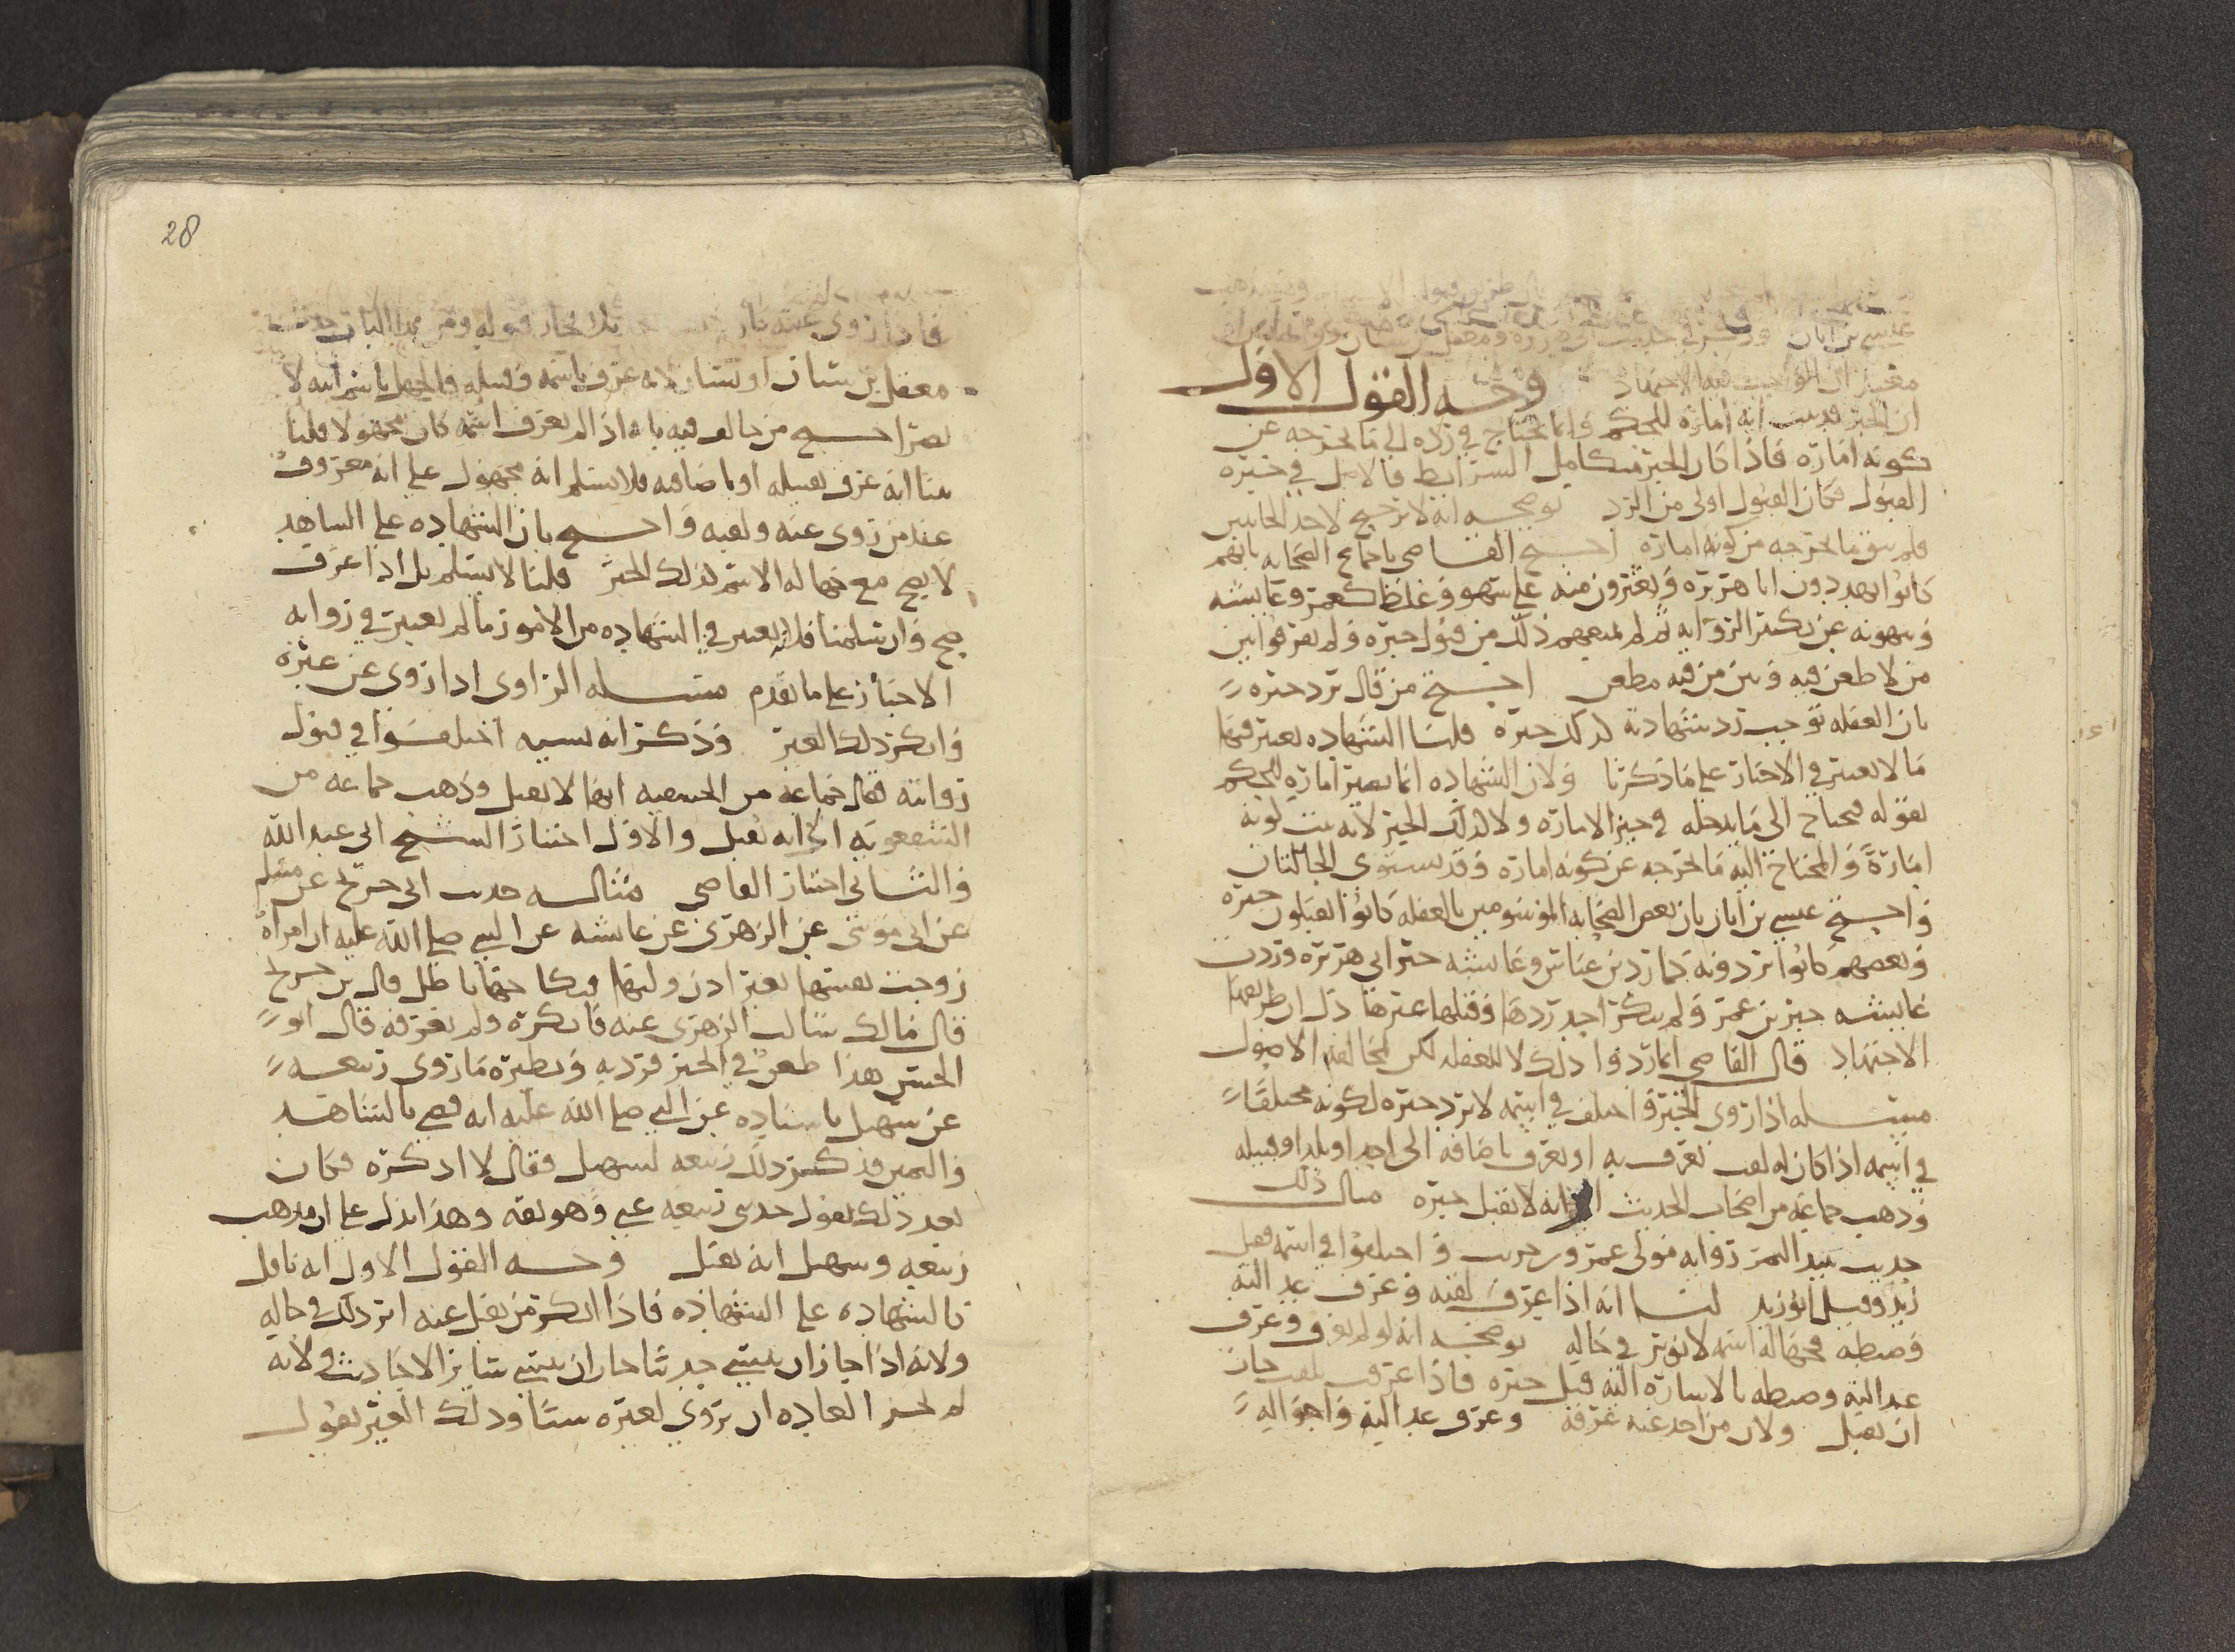 عيسى بن ابان وذكر في حديث ابي هريرة ومعقل بن سنان
معتبرا ان الواجب فيه الاجتهاد وجه القول الاول
ان الخبر قد بينت انه امارة للحكم وانما يحتاج في رده الى ما يخرجه عن
كونه امارة فاذا كان الخبر متكامل الشرائط فالاصل في خبره
القبول فكان القبول اولى من الرد توضيحه انه لا ترجيح لاحد الجانبين
فلم يبق ما يخرجه من كونه امارة احتج القاضي باجماع الصحابة بانهم
كانوا يعدون ابا هريرة ويعثرون منه على سهو وغلط كعمر وعايشة
وينهونه عن تكثير الرواية ثم لم يمنعهم ذلك من قبول خبره ولم يفرقوا بين
من لا طعن فيه وبين من فيه مطعن احتج من قال نرد خبره
بان الغفلة توجب رد شهادته كذلك خبره قلنا الشهادة يعتبر فيها
ما لا يعتبر في الاخبار على ما ذكرنا ولان الشهادة انما تصير امارة للحكم
بقوله فيحتاج الى ما يدخله في حيز الامارة ولا كذلك الخبر لانه يثبت كونه
امارة والمحتاج اليه ما يخرجه عن كونه امارة وقد يستوي الحالتان
واحتج عيسى بن ابان بان بعض الصحابة الموسومين بالغفلة كانوا يقبلون خبره
وبعضهم كانوا يردونه كما رد بن عباس وعايشة خبر ابي هريرة وردت
عايشة خبر بن عمر ولم ينكر احد ردها وقبلها غيرها دل ان طريقها
الاجتهاد قال القاضي انما ردوا ذلك لا للغفلة لكن لمخالفة الاصول
مسئلة اذا روي الخبر واختلف في اسمه لا نرد خبره لكونه مختلفا
في اسمه اذا كان له لقب يعرف به او يعرف باضافة الى احد او بلد او قبيلة
وذهب جماعة من اصحاب الحديث الى انه لا نقبل خبره مثال ذلك
حديث نبيذ التمر رواية مولى عمرو بن حريث واختلفوا في اسمه فقيل
زيد وقيل ابو زيد لنا انه اذا عرف لقبه وعرف عدالته
وضبطه فجهالة اسمه لا تؤثر في حاله توضيحه انه لو لم يعرف وعرف
عدالته وضبطه بالاشارة اليه قبل خبره فاذا عرف بلقب جاز
ان يقبل ولان من اخذ عنه عرفه وعرف عدالته واحواله
28
فاذا روى عنه فلا نختار قبوله ومن هذا الباب حديث
معقل بن سنان او يسار لانه عرف باسمه وقبيلته فالجهل باسم ابيه لا
يضر احتج من خالف فيه بانه اذا لم يعرف اسمه كان مجهولا قلنا
بينا انه عرف بقبيلته او باضافته فلا نسلم انه مجهول على انه معروف
عند من روى عنه ولقيه واحتج بان الشهادة على الشاهد
لا يصح مع جهالة الاسم كذلك الخبر قلنا لا نسلم بل اذا عرف
صح وان سلمنا فلانه يعتبر في الشهادة من الامور ما لم يعتبر في رواية
الاخبار على ما تقدم مسئلة الراوي اذا روى عن غيره
وانكر ذلك الغير وذكر انه نسيه اختلفوا في قبول
روايته فقال جماعة من الحنفية انها لا نقبل وذهب جماعة من
الشفعوية الى انه نقبل والاول اختيار الشيخ ابي عبد الله
والثاني اختيار القاضي مثاله حديث ابن جريج عن مسلم
عن ابي موسى عن الزهري عن عايشة عن النبي صلى الله عليه ان امراة
زوجت نفسها بغير اذن وليها فنكاحها باطل قال بن جريج
قال مالك سالت الزهري عنه فانكره ولم يعرفه قال ابو
الحسن هذا طعن في الخبر فرد به ونظيره ما روى ربيعة
عن سهيل باسناده عن النبي صلى الله عليه انه قضى بالشاهد
واليمين فذكر ذلك ربيعة لسهيل فقال لا اذكره فكان
بعد ذلك يقول حدثني ربيعة عني وهو ثقة وهذا يدل على ان مذهب
ربيعة وسهيل انه يقبل وجه القول الاول انه ناقل
كالشهادة على الشهادة فاذا انكر من نقل عنه اثر ذلك في حاله
ولانه اذا جاز ان ينسى حديثا جاز ان ينسى سائر الاحاديث ولانه
لم تجر العادة ان يروي لغيره شيئا وذلك الغير يقول